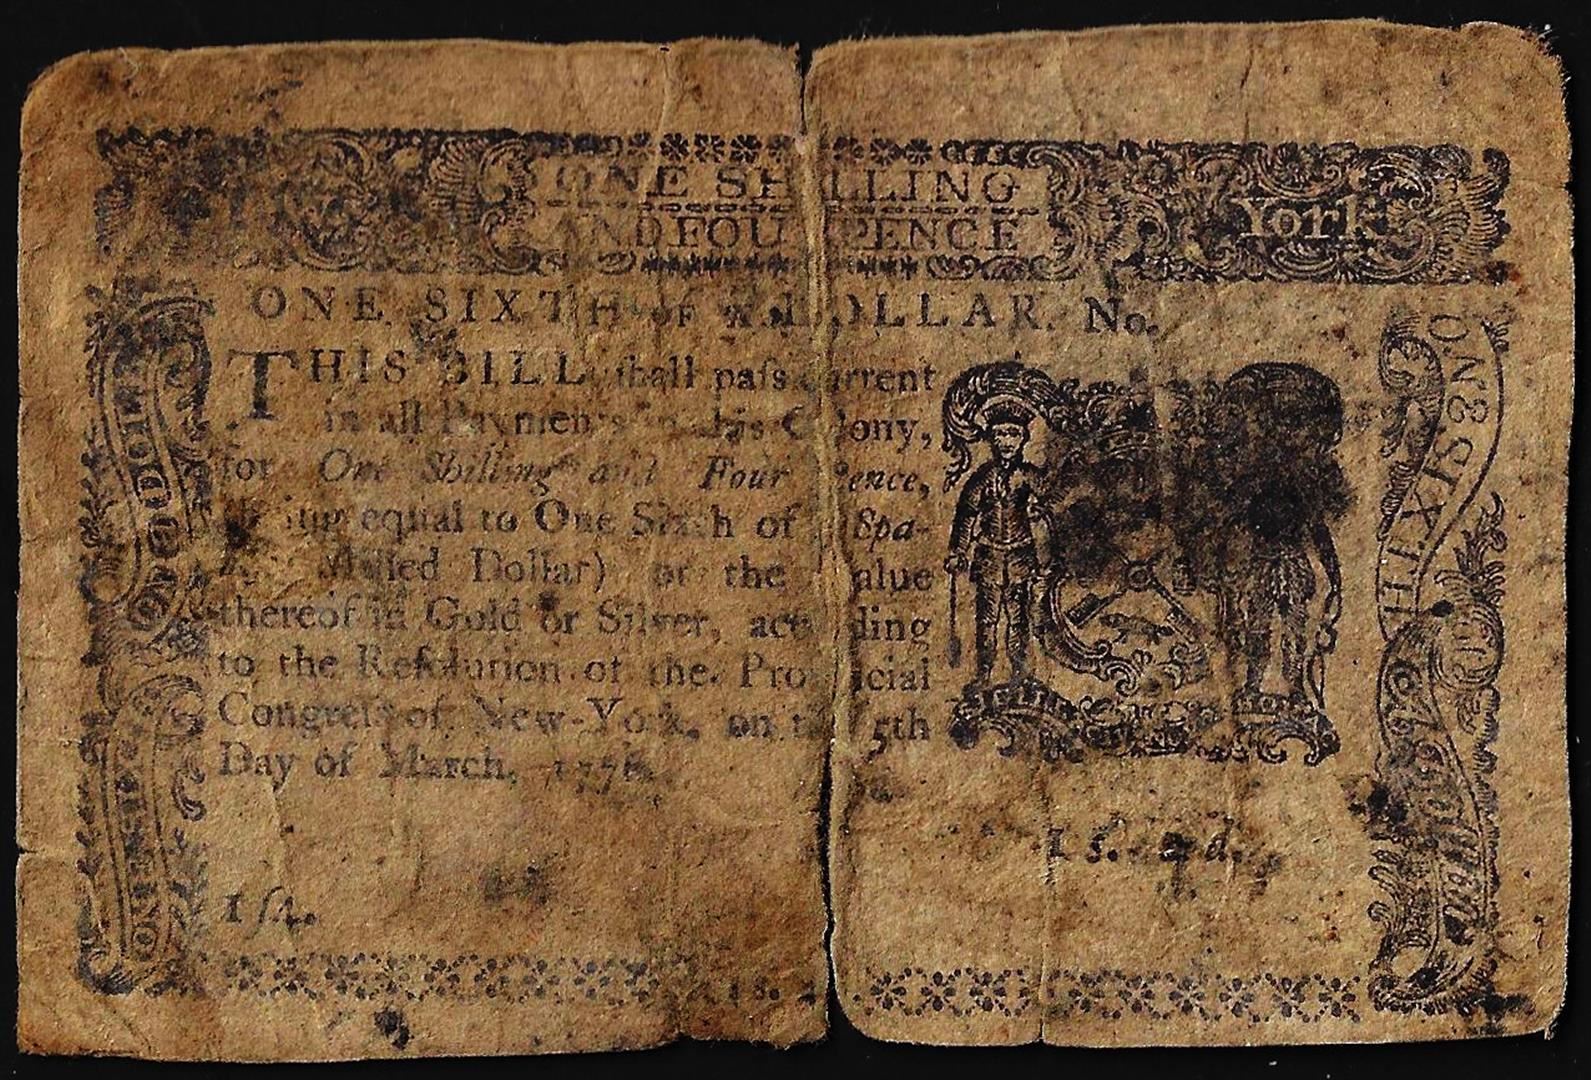 ONE SHILLING
AND FOUR PENCE
York
ONE SIXTH OF A DOLLAR. No.
THIS BILL ſhall paſs current
in all Payments in this Colony,
for One Shilling and Four Pence,
equal to One Sixth of Spa-
Milled Dollar) or the Value
thereof in Gold or Silver, according
to the Reſolution of the Provincial
Congreſs of New-York, on the 5th
Day of March, 1776.
1ſ4.
1 s. 4 d.
ONE SIXTH